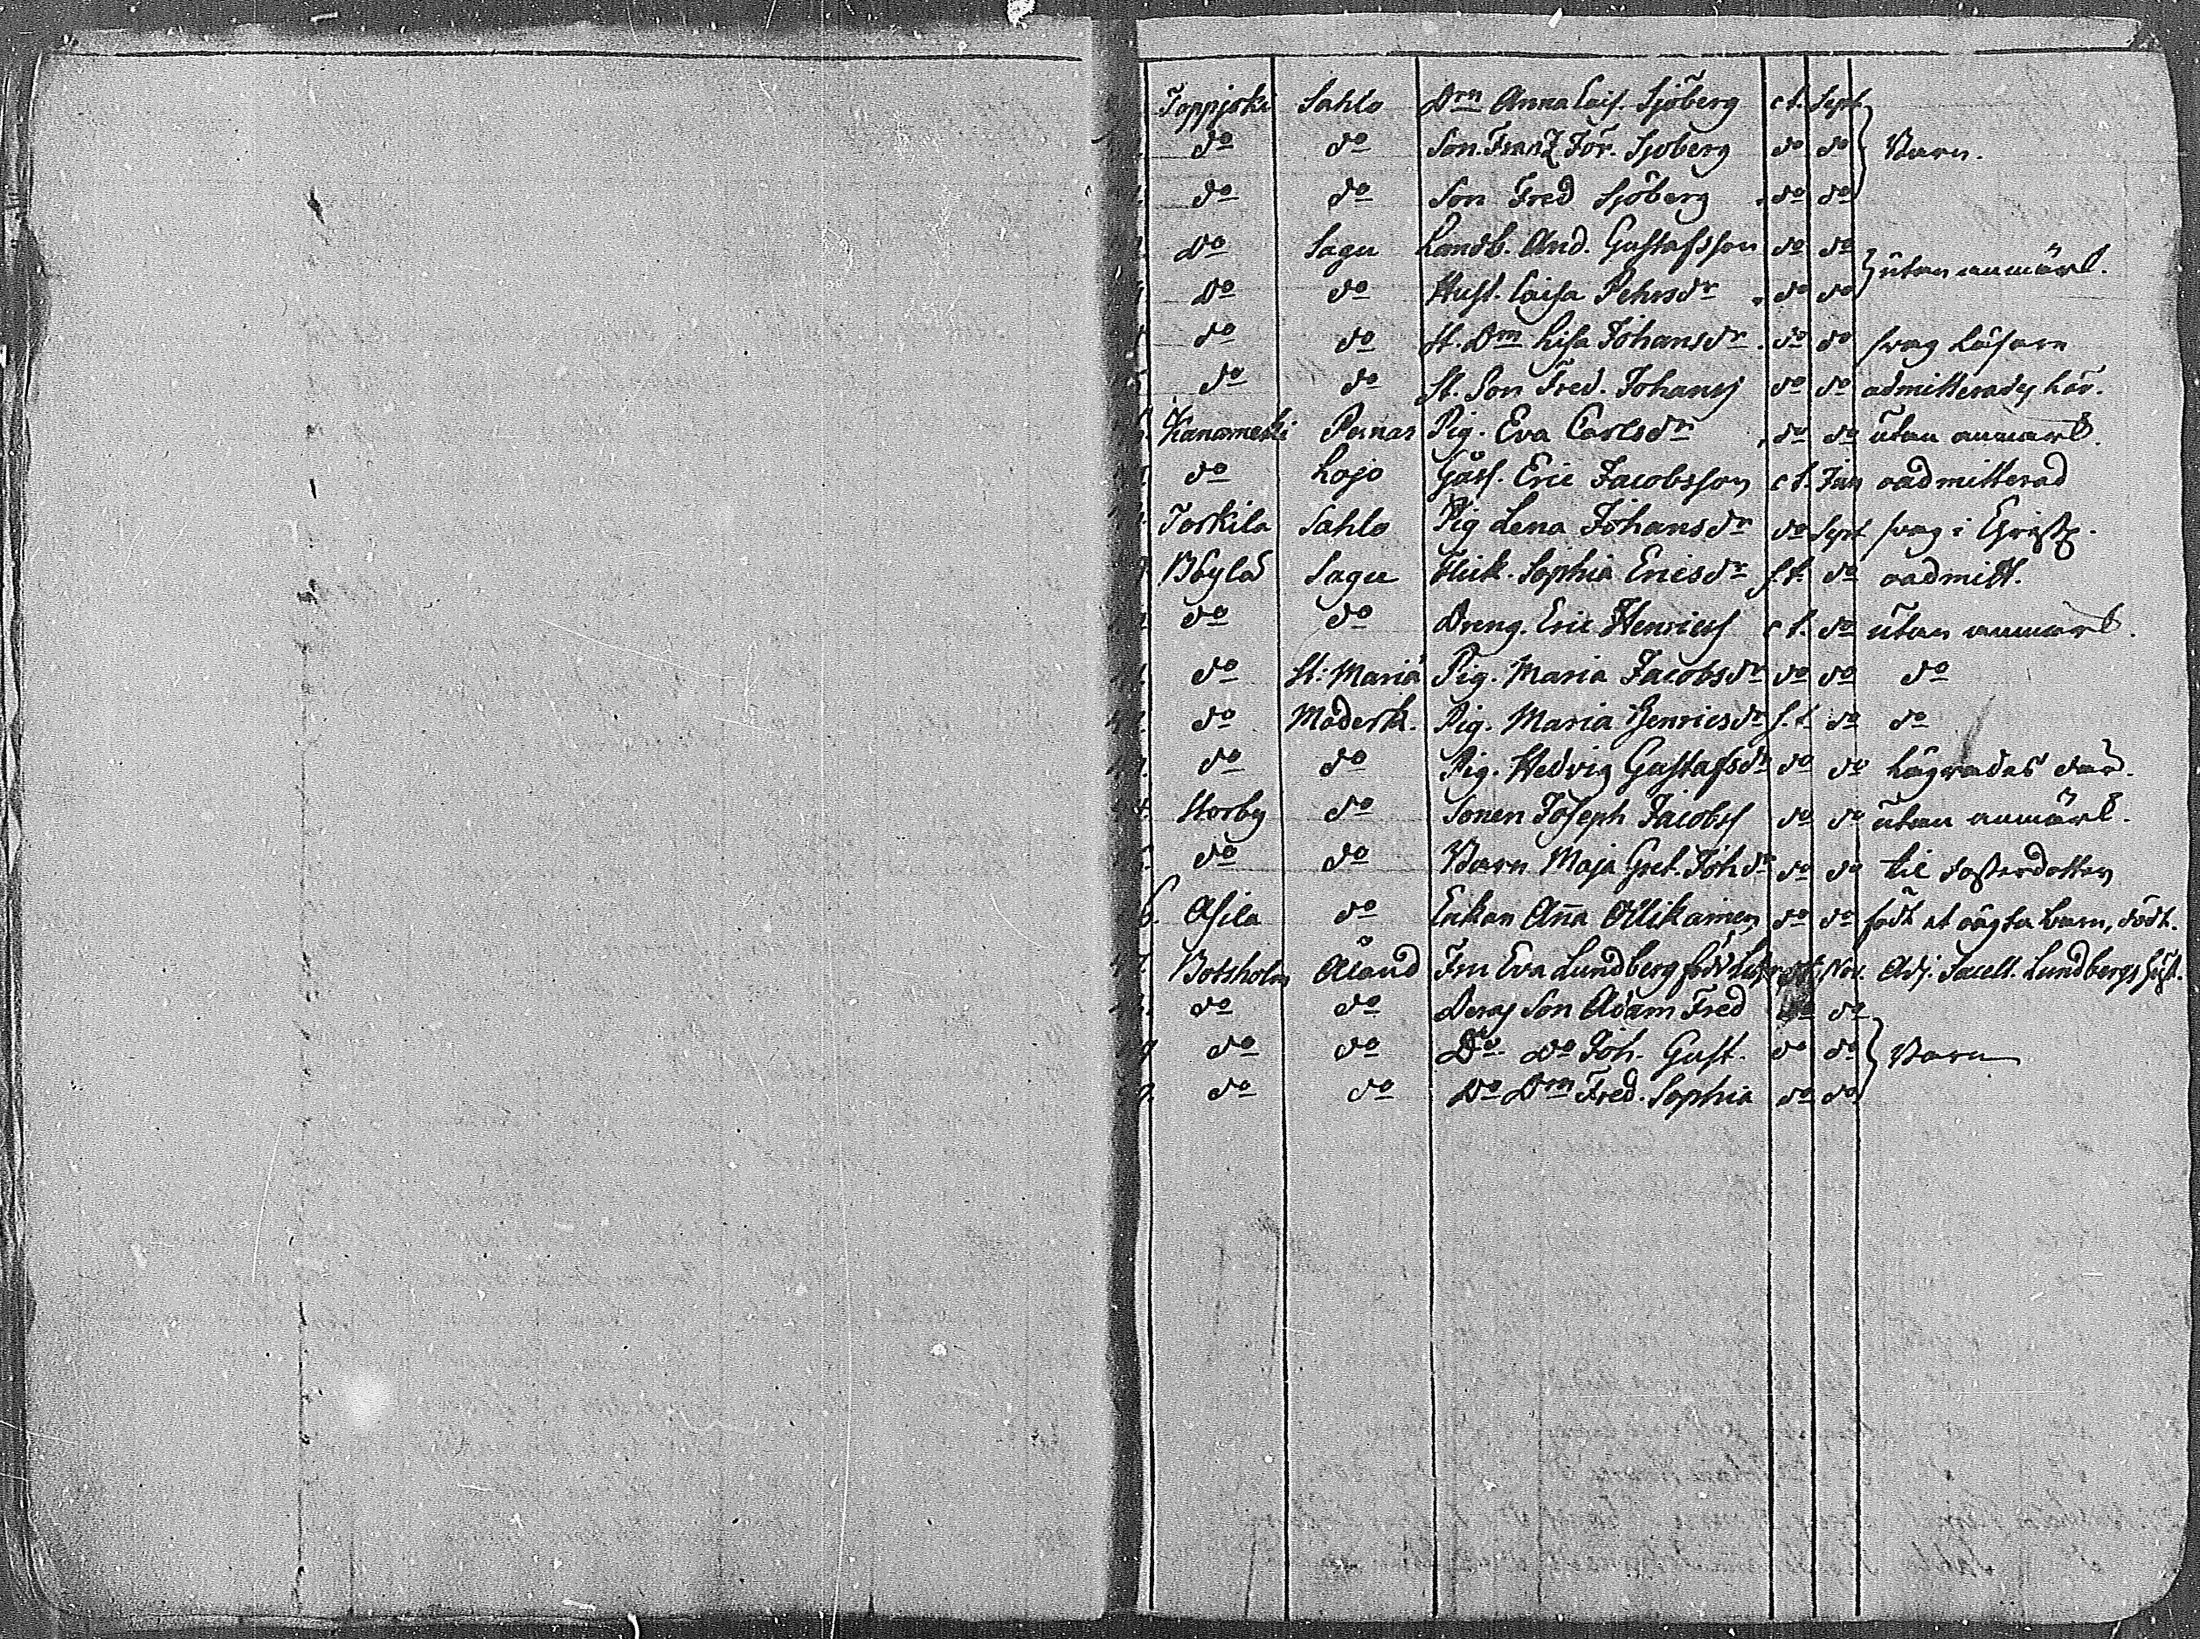 Toppjoki Sahlo Drn Anna Cais. Sjöberg c.t. Sept
do do Son. Franz For. Sjöberg do do Barn.
do do Son Fred Sjöberg do do
do Sagu Landb. And. Gustafsson do do utan anmärk.
do do Hust. Caisa Pehrsdr do do
do do St. Drn Lisa Johansdr do do svag läsare
do do St. Son Fred. Johanss do do admitterades här.
Kanamecki Pernar Pig. Eva Carlsdr do do utan anmärk.
do Lojo Gåss. Eric Jacobsson c.t. Jun oadmitterad
Torkila Sahlo Pig Lena Johansdr do Sept svag i Christ.
Böylä Sagu Flick. Sophia Ericsdr f.t. do oadmitt.
do do Dreng. Eric Henricss c.t. do utan anmärk.
do St: Mariæ Pig. Maria Jacobsdr do do do
do Moderk. Pig. Maria Henricsdr f.t. do do
do do Pig. Hedvig Gustafsdr do do lägrades där.
4. Storby do Sonen Joseph Jacobss do do utan anmärk.
do do Barn Maja Gret. Johdr do do til fosterdotter
6. Asila do Enkan Aña Ollikainen do do födt et oägta barn, dödt.
Botsholm Åland Fru Eva Lundberg född Nov. Adj. Sacell. Lundbergs hust.
do do Deras Son Adam Fred do do
9 do do Do do Joh. Gust. do do Barn
do do Do Drn Fred. Sophia do do